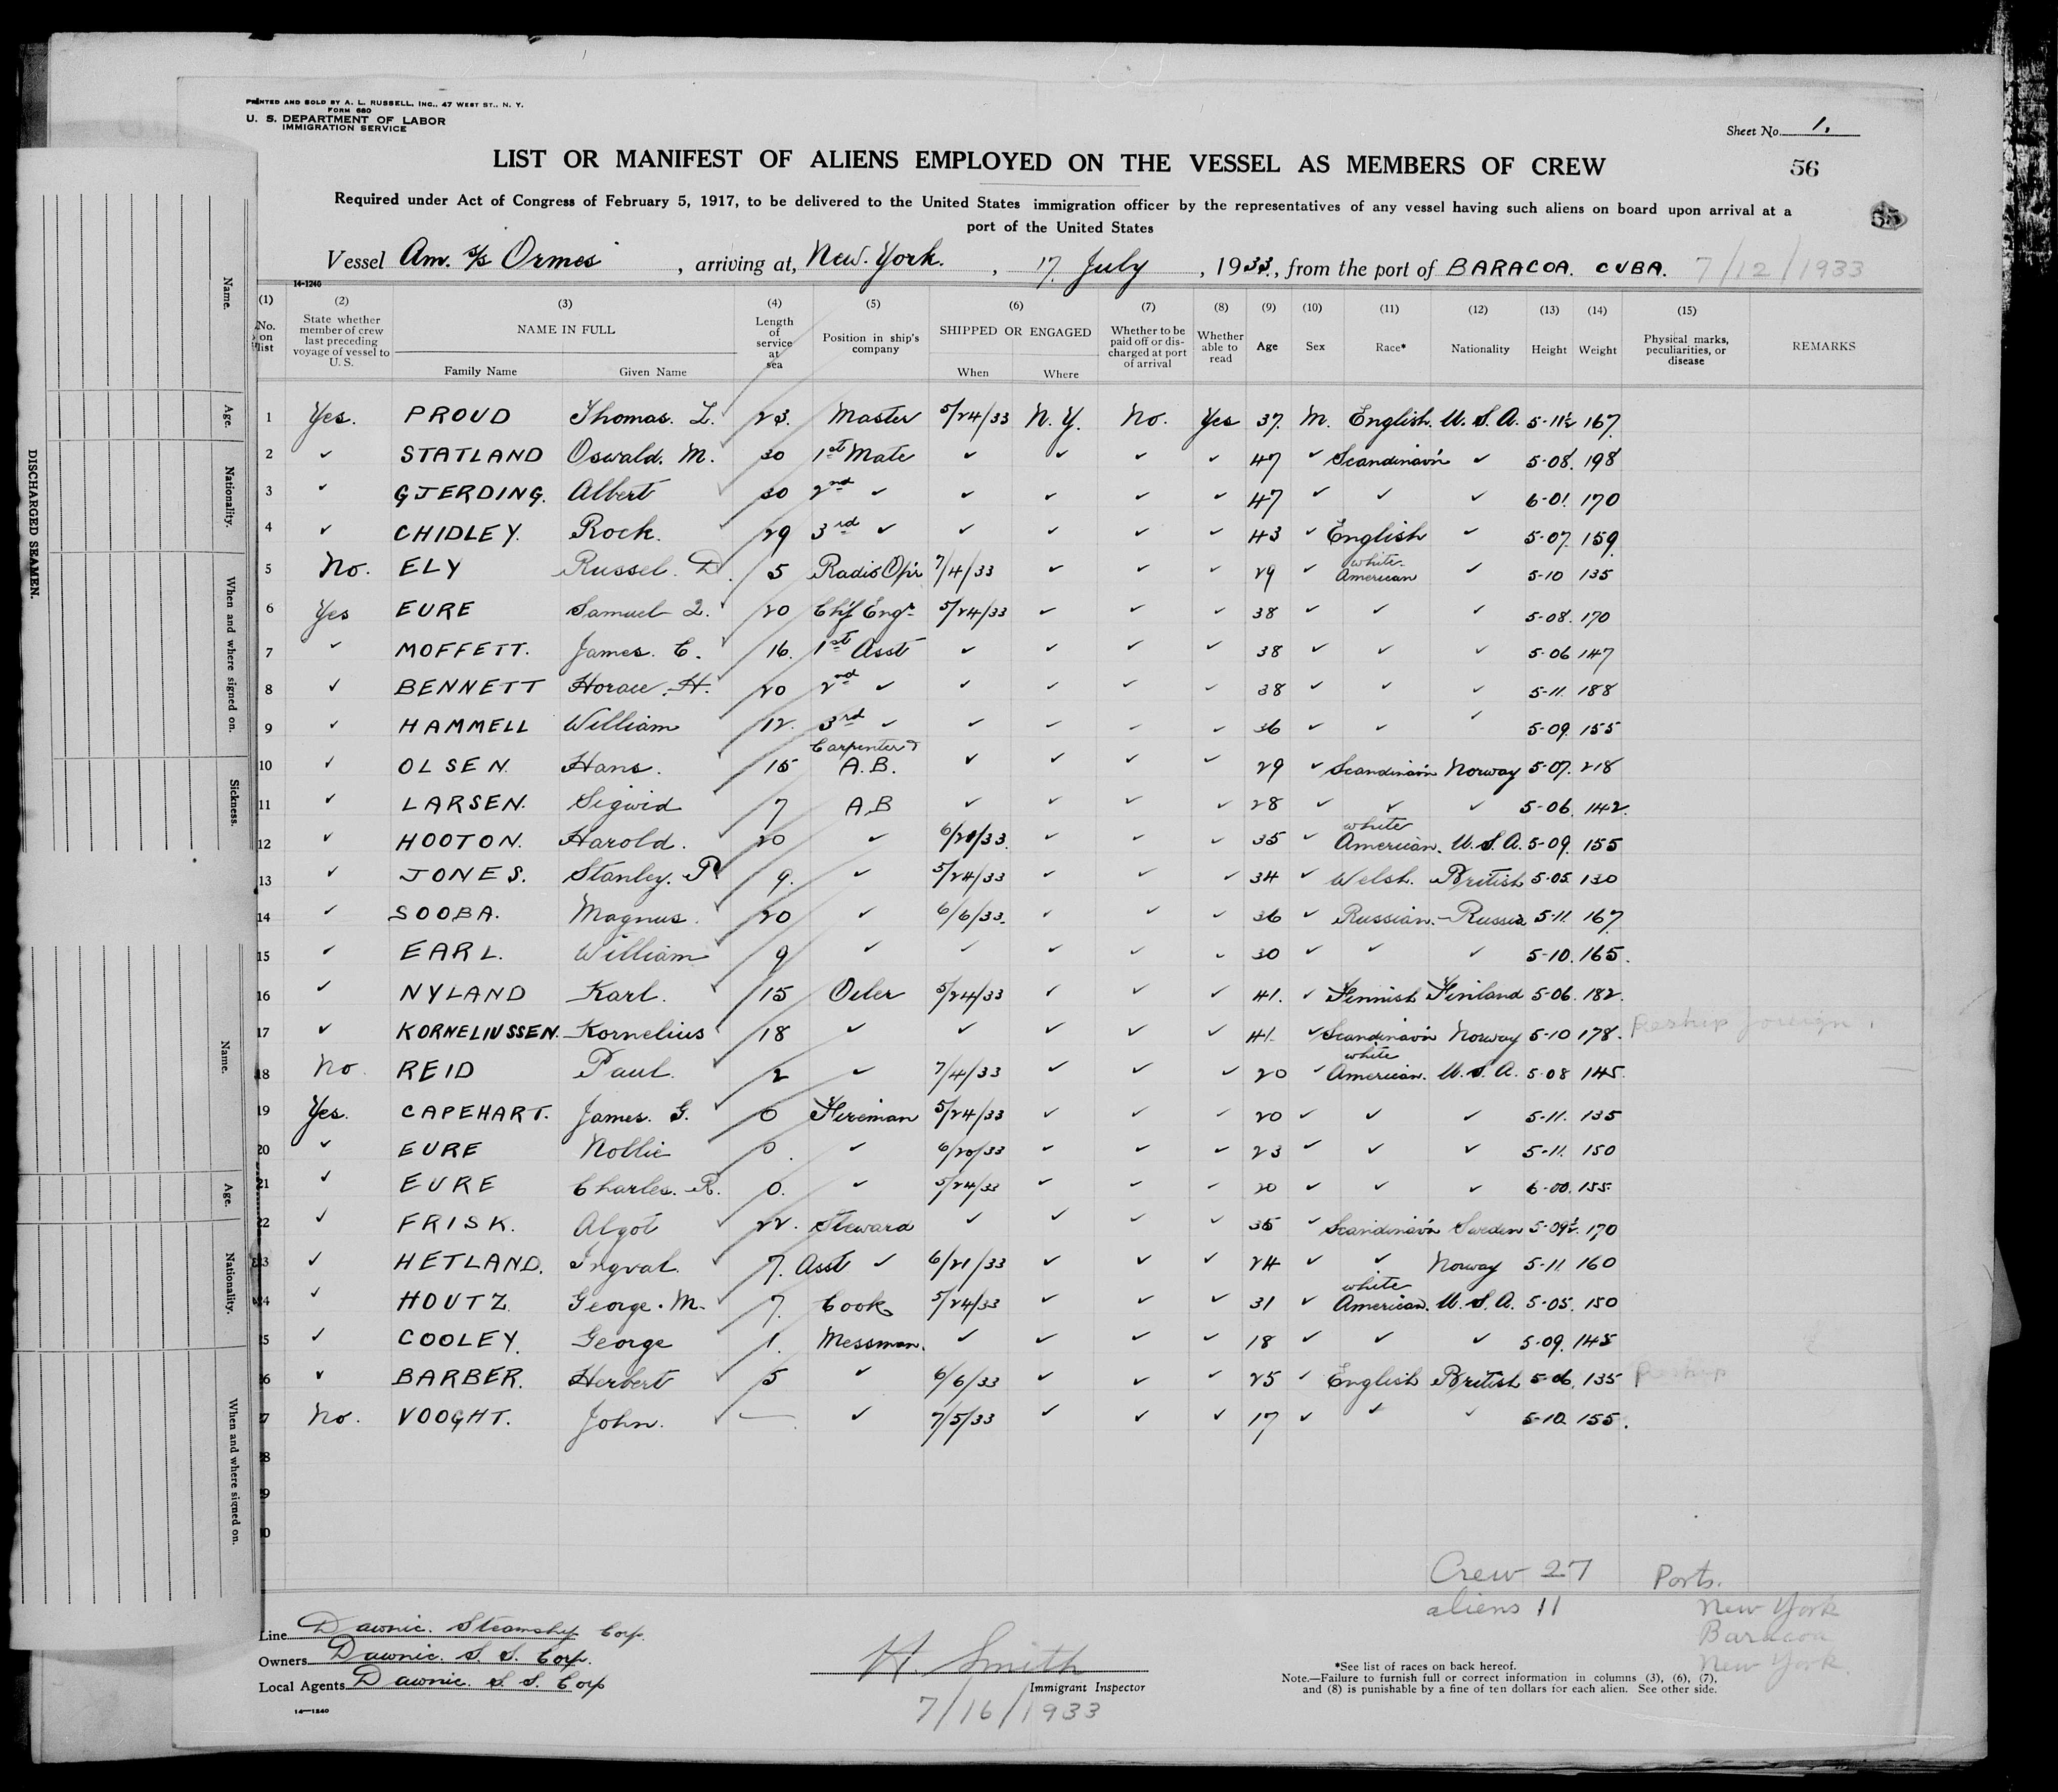 PRINTED AND SOLD BY A. L. RUSSELL, INC., 47 WEST ST., N. Y.
FORM 680
U. S. DEPARTMENT OF LABOR
IMMIGRATION SERVICE
Sheet No. 1.
LIST OR MANIFEST OF ALIENS EMPLOYED ON THE VESSEL AS MEMBERS OF CREW
56
Required under Act of Congress of February 5, 1917, to be delivered to the United States immigration officer by the representatives of any vessel having such aliens on board upon arrival at a
port of the United States
55
Vessel Am. s/s Ormes, arriving at, New. York., 17 July, 1933., from the port of BARACOA. CUBA. 7/12/1933
14-1240
(1) (2) (3) (4) (5) (6) (7) (8) (9) (10) (11) (12) (13) (14) (15)
No. on list
State whether member of crew last preceding voyage of vessel to U. S.
NAME IN FULL
Family Name Given Name
Length of service at sea
Position in ship's company
SHIPPED OR ENGAGED
When Where
Whether to be paid off or discharged at port of arrival
Whether able to read
Age Sex Race* Nationality Height Weight
Physical marks, peculiarities, or disease
REMARKS
1 Yes. PROUD Thomas. L. 23. Master 5/24/33 N. Y. No. Yes 37. M. English. U. S. A. 5-11½ 167
2 ✓ STATLAND Oswald. M. 30 1st Mate ✓ ✓ ✓ ✓ 47 ✓ Scandinav'n ✓ 5-08. 198
3 ✓ GJERDING. Albert 30 2nd ✓ ✓ ✓ ✓ ✓ 47 ✓ ✓ ✓ 6-01. 170
4 ✓ CHIDLEY. Rock. 29 3rd ✓ ✓ ✓ ✓ ✓ 43 ✓ English ✓ 5-07. 159
5 No. ELY Russel. D. 5 Radio Op'r 7/4/33 ✓ ✓ ✓ 29 ✓ white American ✓ 5-10 135
6 Yes EURE Samuel L. 20 Chf Engr 5/24/33 ✓ ✓ ✓ 38 ✓ ✓ ✓ 5-08. 170
7 ✓ MOFFETT. James. C. 16. 1st Asst ✓ ✓ ✓ ✓ 38 ✓ ✓ ✓ 5-06 147
8 ✓ BENNETT Horace. H. 20 2nd ✓ ✓ ✓ ✓ ✓ 38 ✓ ✓ ✓ 5-11. 188
9 ✓ HAMMELL William 12. 3rd ✓ ✓ ✓ ✓ ✓ 36 ✓ ✓ ✓ 5-09. 155
10 ✓ OLSEN. Hans. 15 Carpenter & A.B. ✓ ✓ ✓ ✓ 29 ✓ Scandinav'n Norway 5-07. 218
11 ✓ LARSEN. Sigwid 7 A.B ✓ ✓ ✓ ✓ 28 ✓ ✓ ✓ 5-06. 142.
12 ✓ HOOTON. Harold. 20 ✓ 6/20/33. ✓ ✓ ✓ 35 ✓ white American. U. S. A. 5-09. 155
13 ✓ JONES. Stanley. P 9. ✓ 5/24/33 ✓ ✓ ✓ 34 ✓ Welsh. British 5-05. 130
14 ✓ SOOBA. Magnus. 20 ✓ 6/6/33. ✓ ✓ ✓ 36 ✓ Russian. Russia 5-11. 167
15 ✓ EARL. William 9 ✓ ✓ ✓ ✓ ✓ 30 ✓ ✓ ✓ 5-10. 165.
16 ✓ NYLAND Karl. 15 Oiler 5/24/33 ✓ ✓ ✓ 41. ✓ Finnish Finland 5-06. 182.
17 ✓ KORNELIUSSEN. Kornelius 18 ✓ ✓ ✓ ✓ ✓ 41. ✓ Scandinav'n Norway 5-10 178. Reship foreign.
18 No. REID Paul. 2 ✓ 7/4/33 ✓ ✓ ✓ 20 ✓ white American. U. S. A. 5-08 145.
19 Yes. CAPEHART. James. G. 0 Fireman 5/24/33 ✓ ✓ ✓ 20 ✓ ✓ ✓ 5-11. 135
20 ✓ EURE Nollie 0. ✓ 6/20/33 ✓ ✓ ✓ 23 ✓ ✓ ✓ 5-11. 150
21 ✓ EURE Charles. R. 0. ✓ 5/24/33 ✓ ✓ ✓ 20 ✓ ✓ ✓ 6-00. 155.
22 ✓ FRISK. Algot 22. Steward ✓ ✓ ✓ ✓ 35 ✓ Scandinav'n Sweden 5-09½. 170
23 ✓ HETLAND. Ingval. 7. Asst ✓ 6/21/33 ✓ ✓ ✓ 24 ✓ ✓ Norway 5-11 160
24 ✓ HOUTZ. George. M. 7. Cook 5/24/33 ✓ ✓ ✓ 31 ✓ white American. U. S. A. 5-05. 150
5 ✓ COOLEY. George 1. Messman. ✓ ✓ ✓ ✓ 18 ✓ ✓ ✓ 5-09. 145
6 ✓ BARBER. Herbert 5 ✓ 6/6/33 ✓ ✓ ✓ 25 ✓ English British 5-06. 135 Reship
7 No. VOOGHT. John. — ✓ 7/5/33 ✓ ✓ ✓ 17 ✓ ✓ ✓ 5-10. 155.
8
9
0
Crew 27
aliens 11
Ports.
New York
Baracoa
New York.
Line Dawnic. Steamship Corp.
Owners Dawnic. S. S. Corp.
Local Agents Dawnic. S. S. Corp
H. Smith
Immigrant Inspector
7/16/1933
*See list of races on back hereof.
Note.—Failure to furnish full or correct information in columns (3), (6), (7),
and (8) is punishable by a fine of ten dollars for each alien. See other side.
14—1240
DISCHARGED SEAMEN.
Name.
Age.
Nationality.
When and where signed on.
Sickness.
Name.
Age.
Nationality.
When and where signed on.